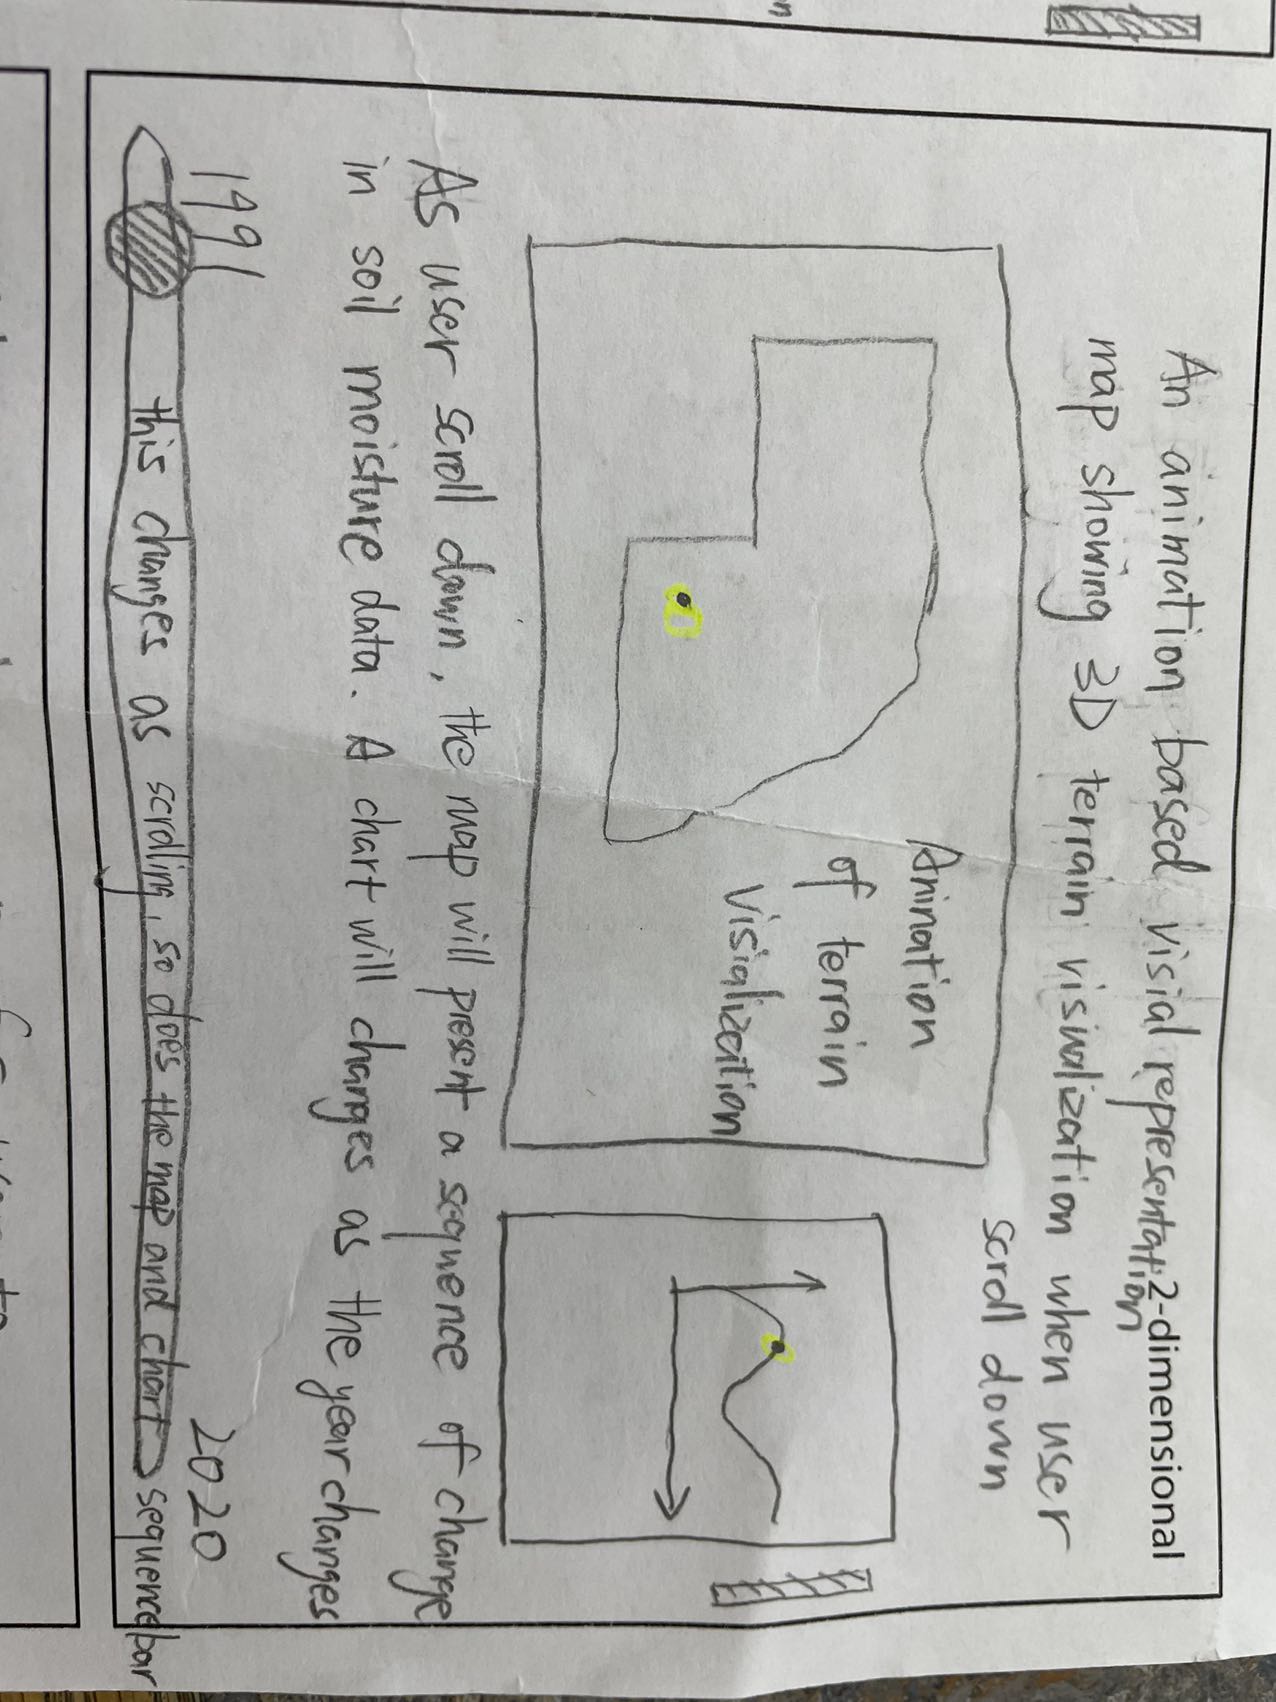 An animation based visial representation
2-dimensional
map showing 3D terrain visualization when user
scroll down
Anination
of terrain
visialization
As user scroll down, the map will present a sequence of change
in soil moisture data. A chart will changes as the year changes
1991
2020
this changes as scrolling, so does the map and chart
sequence bar
n